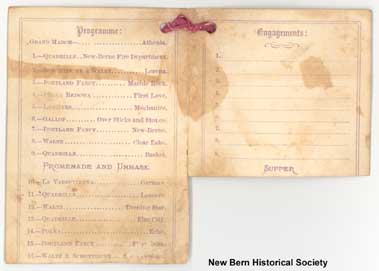 Programme:
GRAND MARCH— Athenia.
1.—QUADRILLE, New-Berne Fire Department.
WALTZ, Lorena.
3.—PORTLAND FANCY,
REDOWA, First Love.
5.—LANCIERS, Mechanics.
6.—GALLOP, Over Sticks and Stones.
7.—PORTLAND FANCY, New-Berne.
8.—WALTZ, Clear Lake.
9.—QUADRILLE, Basket.
PROMENADE AND UNMASK.
10.—LA VARSOVIENNE, German.
11.—QUADRILLE,
12.—WALTZ, Evening Star.
13.—QUADRILLE, Elm City.
14.—POLKA, Echo.
15.—PORTLAND FANCY,
16.—WALTZ & SCHOTTISCHE,
Engagements:
1.
2.
3.
4.
5.
6.
7.
8.
9.
SUPPER
New Bern Historical Society